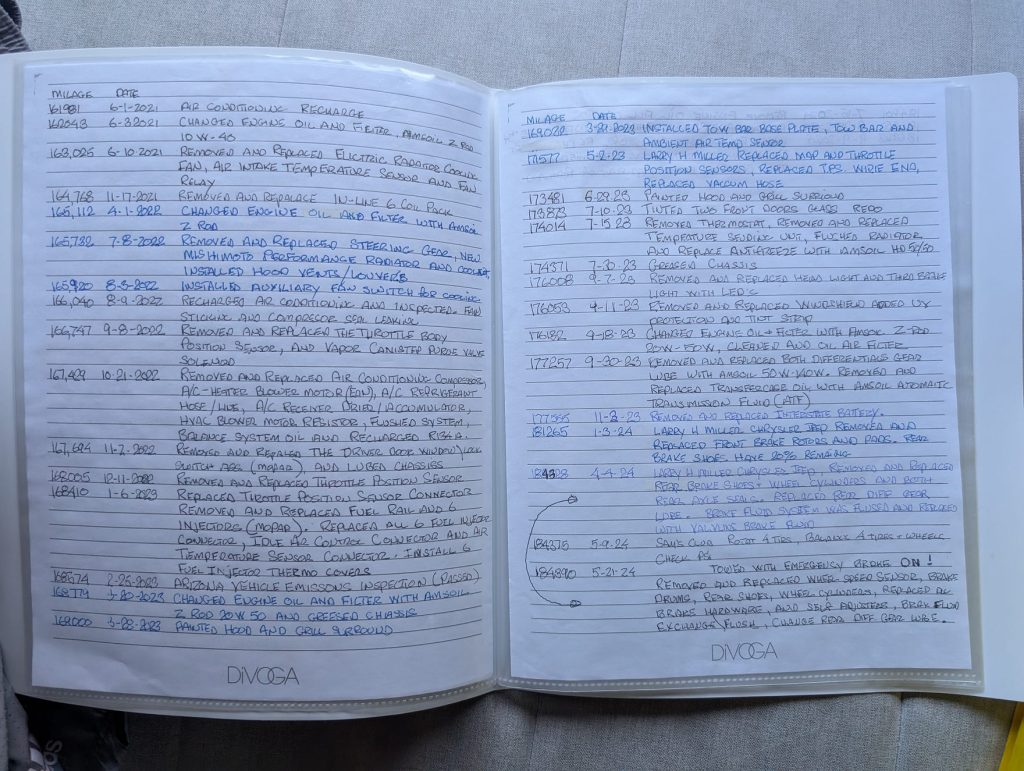 MILAGE DATE
161981 6-1-2021 AIR CONDITIONING RECHARGE
162043 6-3-2021 CHANGED ENGINE OIL AND FILTER, AMSOIL Z ROD
10W-40
163,025 6-10-2021 REMOVED AND REPLACED ELECTRIC RADIATOR COOLING
FAN, AIR INTAKE TEMPERATURE SENSOR AND FAN
RELAY
164,768 11-17-2021 REMOVED AND REPALACE IN-LINE 6 COIL PACK
165,112 4-1-2022 CHANGED ENGINE OIL AND FILTER WITH AMSOIL
Z ROD
165,782 7-8-2022 REMOVED AND REPLACED STEERING GEAR, NEW
MISHIMOTO PERFORMANCE RADIATOR AND COOLANT,
INSTALLED HOOD VENTS/LOUVERS
165,920 8-3-2022 INSTALLED AUXILIARY FAN SWITCH FOR COOLING
166,040 8-9-2022 RECHARGED AIR CONDITIONING AND INSPECTED. FAN
STICKING AND COMPRESSOR SEAL LEAKING
166,747 9-8-2022 REMOVED AND REPLACED THE THROTTLE BODY
POSITION SENSOR, AND VAPOR CANISTER PURGE VALVE
SOLENOID
167,429 10-21-2022 REMOVED AND REPLACED AIR CONDITIONING COMPRESSOR,
A/C-HEATER BLOWER MOTOR (FAN), A/C REFRIGERANT
HOSE/LINE, A/C RECEIVER DRIER/ACCUMULATOR,
HVAC BLOWER MOTOR RESISTOR, FLUSHED SYSTEM,
BALANCE SYSTEM OIL AND RECHARGED R134A.
167,624 11-2-2022 REMOVED AND REPLACED THE DRIVER DOOR WINDOW/LOCK
SWITCH ASSY (MOPAR), AND LUBED CHASSIS
168005 12-11-2022 REMOVED AND REPLACED THROTTLE POSITION SENSOR
168410 1-6-2023 REPLACED THROTTLE POSITION SENSOR CONNECTOR
REMOVED AND REPLACED FUEL RAIL AND 6
INJECTORS (MOPAR). REPLACED ALL 6 FUEL INJECTOR
CONNECTOR, IDLE AIR CONTROL CONNECTOR AND AIR
TEMPERATURE SENSOR CONNECTOR. INSTALL 6
FUEL INJECTOR THERMO COVERS
168574 2-25-2023 ARIZONA VEHICLE EMISSONS INSPECTION (PASSED)
168779 3-20-2023 CHANGED ENGINE OIL AND FILTER WITH AMSOIL
Z ROD 20W50 AND GREESED CHASSIS
169000 3-28-2023 PAINTED HOOD AND GRILL SURROUND
DIVOGA
MILAGE DATE
169032 3-29-2023 INSTALLED TOW BAR BASE PLATE, TOW BAR AND
AMBIENT AIR TEMP SENSOR
171577 5-2-23 LARRY H MILLER REPLACED MAP AND THROTTLE
POSITION SENSORS, REPLACED T.P.S. WIRIE END,
REPLACED VACCUM HOSE
173481 6-29-23 PAINTED HOOD AND GRILL SURROUND
173873 7-10-23 TINTED TWO FRONT DOORS GLASS REDO
174014 7-15-23 REMOVED THERMOSTAT, REMOVED AND REPLACED
TEMPERATURE SENDING UNIT, FLUSHED RADIATOR
AND REPLACE ANTIFREEZE WITH AMSOIL HD 50/50
174371 7-30-23 GREASED CHASSIS
176008 9-7-23 REMOVED AND REPLACED HEAD LIGHT AND THIRD BRAKE
LIGHT WITH LEDS
176053 9-11-23 REMOVED AND REPLACED WINDSHIELD ADDED UV
PROTECTION AND TINT STRIP
176182 9-18-23 CHANGED ENGINE OIL + FILTER WITH AMSOIL Z-ROD
20W-50W, CLEANED AND OIL AIR FILTER
177257 9-30-23 REMOVED AND REPLACED BOTH DIFFERENTIALS GEAR
LUBE WITH AMSOIL 50W-140W. REMOVED AND
REPLACED TRANSFERCASE OIL WITH AMSOIL AUTOMAITC
TRANSMISSION FLUID (ATF)
177365 11-2-23 REMOVED AND REPLACED INTERSTATE BATTERY.
181265 1-3-24 LARRY H MILLER CHRYSLER JEEP REMOVED AND
REPLACED FRONT BRAKE ROTORS AND PADS. REAR
BRAKE SHOES HAVE 20% REMAING
4-4-24 LARRY H MILLER CHRYSLER JEEP, REMOVED AND REPLACED
REAR BRAKE SHOES + WHEEL CYLINDERS AND BOTH
REAR AXLE SEALS. REPLACED REAR DIFF GEAR
LUBE. BROKE FLUID SYSTEM WAS FLUSED AND REPLACED
WITH VALVLINE BRAKE FLUID
184375 5-9-24 SAM'S CLUB ROTAT 4 TIRES, BALANCE 4 TIRES + WHEELS
CHECK PSI
184890 5-21-24 TOWED WITH EMERGENCY BRAKE ON!
REMOVED AND REPLACED WHEEL SPEED SENSOR, BRAKE
DRUMS, REAR SHOES, WHEEL CYLINDERS, REPLACED ALL
BRAKE HARDWARE, AND SELF ADJUSTERS, BRAKE FLUID
EXCHANGE/FLUSH, CHANGE REAR DIFF GEAR LUBE.
DIVOGA